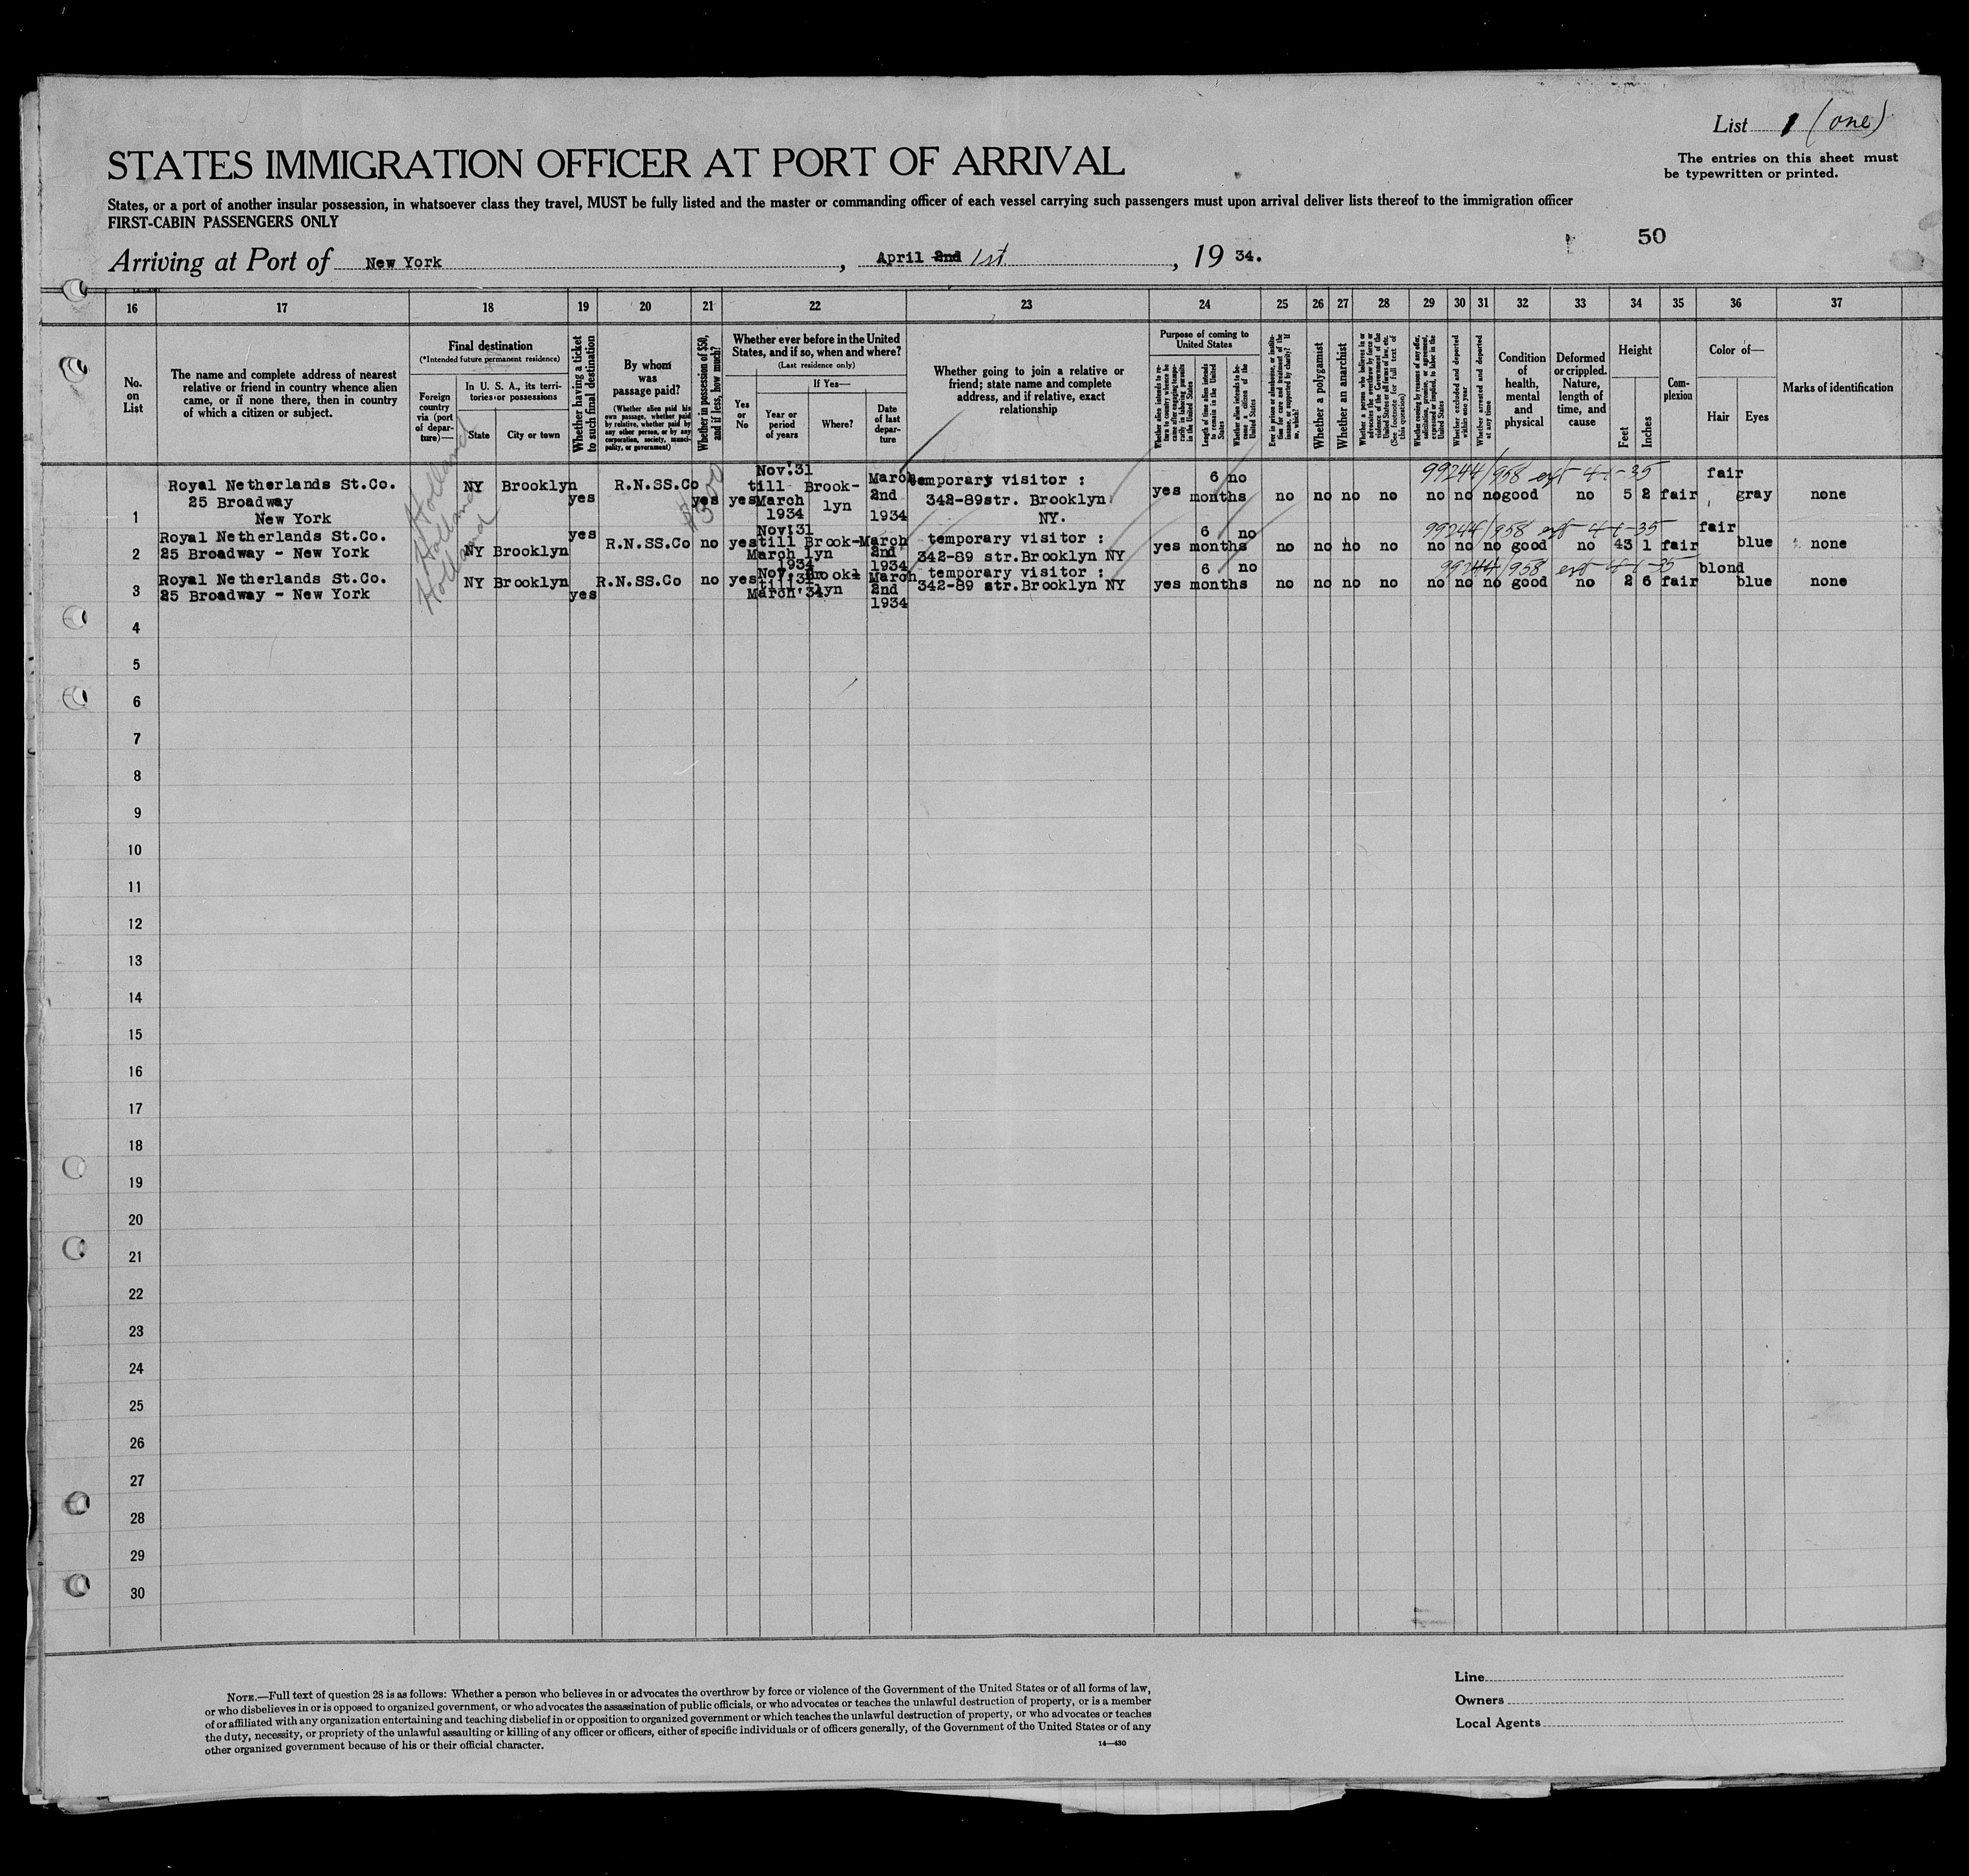 List 1 (one)
STATES IMMIGRATION OFFICER AT PORT OF ARRIVAL
The entries on this sheet must
be typewritten or printed.
States, or a port of another insular possession, in whatsoever class they travel, MUST be fully listed and the master or commanding officer of each vessel carrying such passengers must upon arrival deliver lists thereof to the immigration officer
FIRST-CABIN PASSENGERS ONLY
50
Arriving at Port of New York, April 2nd 1st, 19 34.
16 17 18 19 20 21 22 23 24 25 26 27 28 29 30 31 32 33 34 35 36 37
No. on List
The name and complete address of nearest
relative or friend in country whence alien
came, or if none there, then in country
of which a citizen or subject.
Final destination
(*Intended future permanent residence)
Foreign country via (port of departure)—
In U. S. A., its territories or possessions
State
City or town
Whether having a ticket to such final destination
By whom was passage paid?
(Whether alien paid his own passage, whether paid by relative, whether paid by any other person, or by any corporation, society, municipality, or government)
Whether in possession of $50, and if less, how much?
Whether ever before in the United States, and if so, when and where?
(Last residence only)
Yes or No
If Yes—
Year or period of years
Where?
Date of last departure
Whether going to join a relative or
friend; state name and complete
address, and if relative, exact
relationship
Purpose of coming to United States
Whether alien intends to return to country whence he came after engaging temporarily in laboring pursuits in the United States
Length of time alien intends to remain in the United States
Whether alien intends to become a citizen of the United States
Ever in prison or almshouse, or institution for care and treatment of the insane, or supported by charity? If so, which?
Whether a polygamist
Whether an anarchist
Whether a person who believes in or advocates the overthrow by force or violence of the Government of the United States or all forms of law, etc. (See footnote for full text of this question)
Whether coming by reason of any offer, solicitation, promise, or agreement, expressed or implied, to labor in the United States
Whether excluded and deported within one year
Whether arrested and deported at any time
Condition of health, mental and physical
Deformed or crippled. Nature, length of time, and cause
Height
Feet
Inches
Complexion
Color of—
Hair
Eyes
Marks of identification
1 Royal Netherlands St.Co.
25 Broadway
New York
Holland NY Brooklyn yes R.N.SS.Co yes $300 yes Nov.31 till March 1934 Brook-lyn March 2nd 1934 temporary visitor :
342-89str. Brooklyn
NY.
yes 6 months no no no no no no no no good no 5 2 fair fair gray none
99244/958 4-1-35
2 Royal Netherlands St.Co.
25 Broadway - New York
Holland NY Brooklyn yes R.N.SS.Co no yes Nov.31 till March 1934 Brook-lyn March 2nd 1934 temporary visitor :
342-89 str.Brooklyn NY
yes 6 months no no no no no no no no good no 43 1 fair fair blue none
99244/958 4-1-35
3 Royal Netherlands St.Co.
25 Broadway - New York
Holland NY Brooklyn yes R.N.SS.Co no yes Nov. 31 till March'34 Brook-lyn March 2nd 1934 temporary visitor :
342-89 str.Brooklyn NY
yes 6 months no no no no no no no no good no 2 6 fair blond blue none
99244/958 4-1-35
4
5
6
7
8
9
10
11
12
13
14
15
16
17
18
19
20
21
22
23
24
25
26
27
28
29
30
NOTE.—Full text of question 28 is as follows: Whether a person who believes in or advocates the overthrow by force or violence of the Government of the United States or of all forms of law,
or who disbelieves in or is opposed to organized government, or who advocates the assassination of public officials, or who advocates or teaches the unlawful destruction of property, or is a member
of or affiliated with any organization entertaining and teaching disbelief in or opposition to organized government or which teaches the unlawful destruction of property, or who advocates or teaches
the duty, necessity, or propriety of the unlawful assaulting or killing of any officer or officers, either of specific individuals or of officers generally, of the Government of the United States or of any
other organized government because of his or their official character.
14—430
Line
Owners
Local Agents